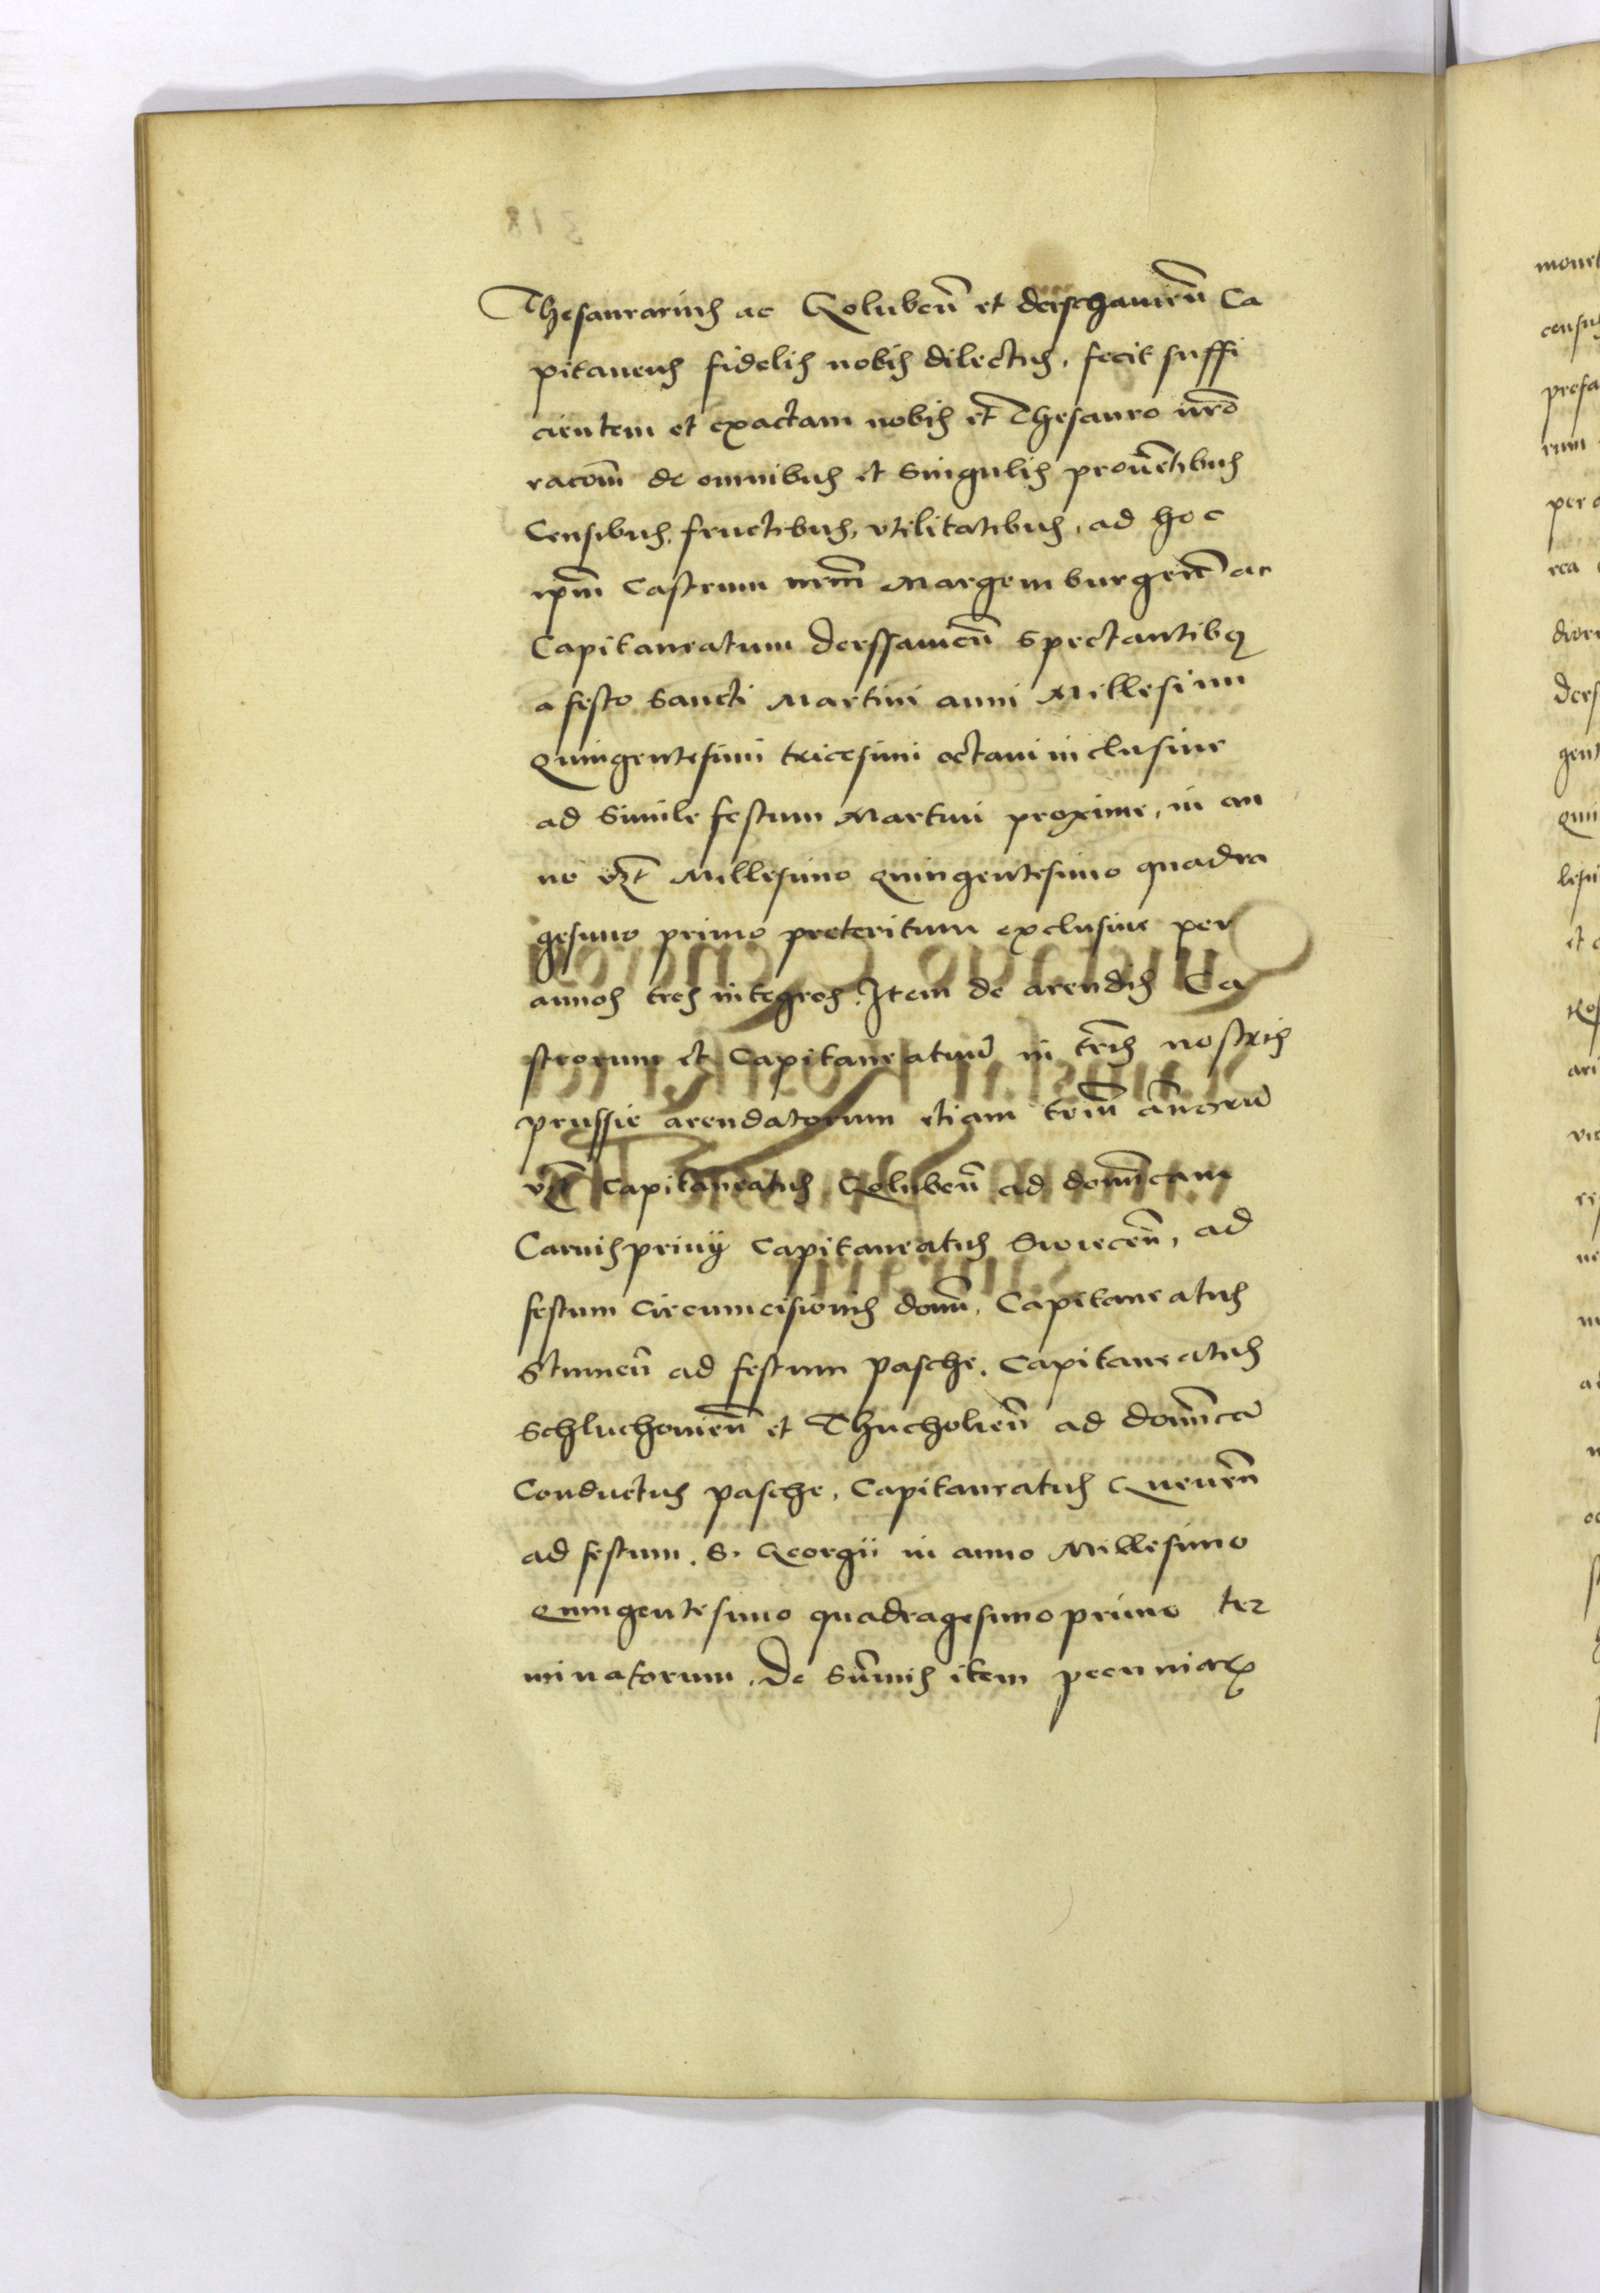 Thesaurarius ac Goluben̄ et derschauien̄ Ca
pitaneus fidelis nobis dilectus, fecit suffi
cientem et exactam nobis et Thesauro nrō
racōm̄ de omnibus et Singulis prouētibus
Censibus, fructibus, vtilitatibus, ad hoc
ip̄m Castrum nrm̄ Margemburgen̄ ac
Capitaneatum derssauien̄ Spectantibq
a festo Sancti Martini anni Millesimi
Quingentesimi tricesimi octaui inclusiue
ad Simile festum Martini proxime, in an
no Millesimo Quingentesimo quadra
gesimo primo preteritum exclusiue per
annos tres integros. Item de arendis Ca
strorum et Capitaneatuū in tr̄is nostris
prussie arendatorum etiam triū annorū
vz̄ Capitaneatus Goluben̄ ad domīcam
Carnispriuij Capitaneatus Swiecen̄, ad
festum Circumcisionis domī, Capitaneatus
Stumen̄ ad festum Pasche, Capitaneatus
Schluchouien̄ et Thucholien̄ ad domīcā
Conductus pasche, Capitaneatus Gneuen̄
ad festum S. Georgii in anno Millesimo
Quingentesimo quadragesimo primo ter
minatorum, De Sūmis item pecuniarū